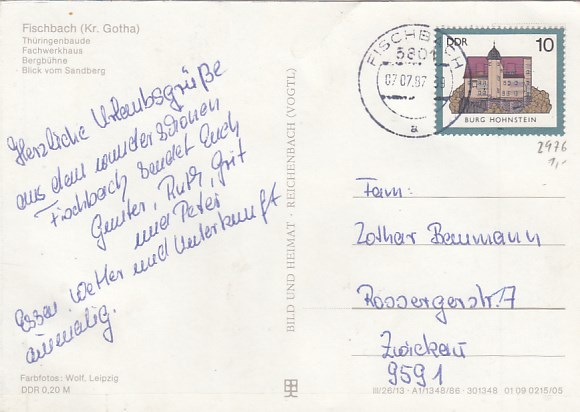 Fischbach (Kr. Gotha)
Thüringenbaude
Fachwerkhaus
Bergbühne
Blick vom Sandberg
Herzliche Urlaubsgrüße
aus dem wunderschönen
Fischbach sendet Euch
Gunter, Ruth, Grit
und Peter
Essen, Wetter und Unterkunft
einmalig.
Farbfotos: Wolf, Leipzig
DDR 0,20 M
BILD UND HEIMAT · REICHENBACH (VOGTL)
FISCHBACH
5801
07.07.87
a
DDR
10
BURG HOHNSTEIN
2976
1,-
Fam:
Lothar Baumann
Rossergerstr. 7
Zwickau
9591
III/26/13 · A1/1348/86 · 301348 01 09 0215/05